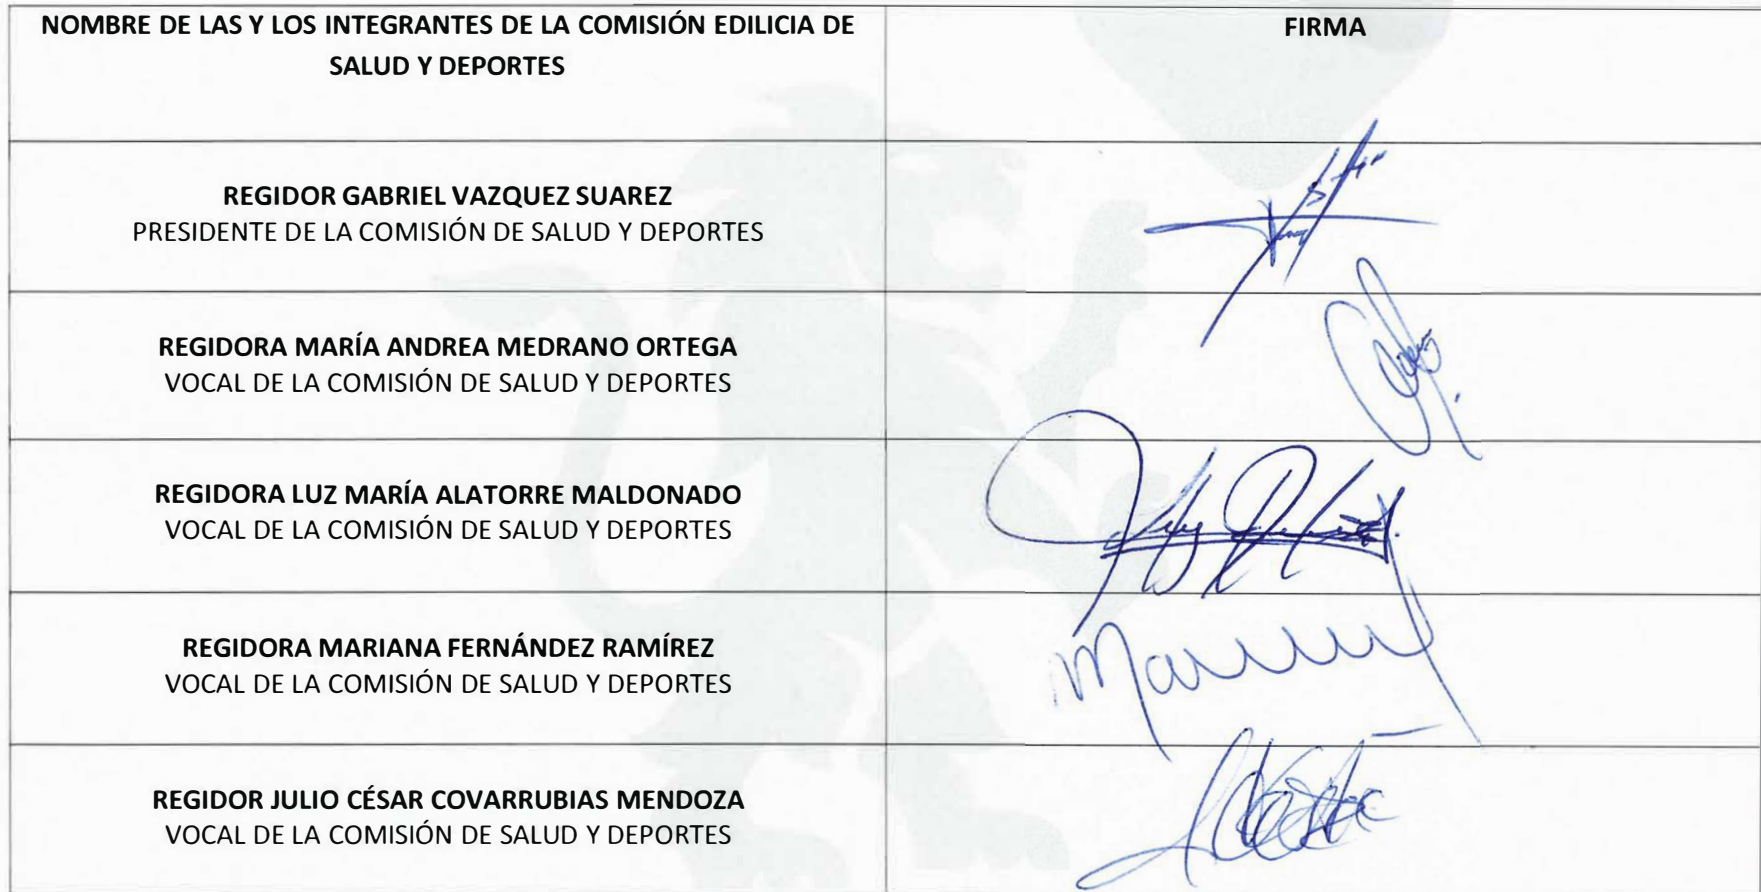 NOMBRE DE LAS Y LOS INTEGRANTES DE LA COMISIÓN EDILICIA DE
SALUD Y DEPORTES
FIRMA
REGIDOR GABRIEL VAZQUEZ SUAREZ
PRESIDENTE DE LA COMISIÓN DE SALUD Y DEPORTES
REGIDORA MARÍA ANDREA MEDRANO ORTEGA
VOCAL DE LA COMISIÓN DE SALUD Y DEPORTES
REGIDORA LUZ MARÍA ALATORRE MALDONADO
VOCAL DE LA COMISIÓN DE SALUD Y DEPORTES
REGIDORA MARIANA FERNÁNDEZ RAMÍREZ
VOCAL DE LA COMISIÓN DE SALUD Y DEPORTES
REGIDOR JULIO CÉSAR COVARRUBIAS MENDOZA
VOCAL DE LA COMISIÓN DE SALUD Y DEPORTES